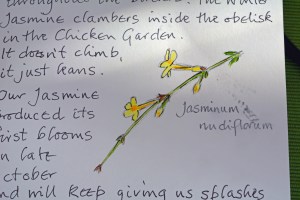 throughout the . The Winter
Jasmine clambers inside the obelisk
in the Chicken Garden.
It doesn't climb,
it just leans.
Our Jasmine
produced its
first blooms
in late
October
and will keep giving us splashes
Jasminum
nudiflorum